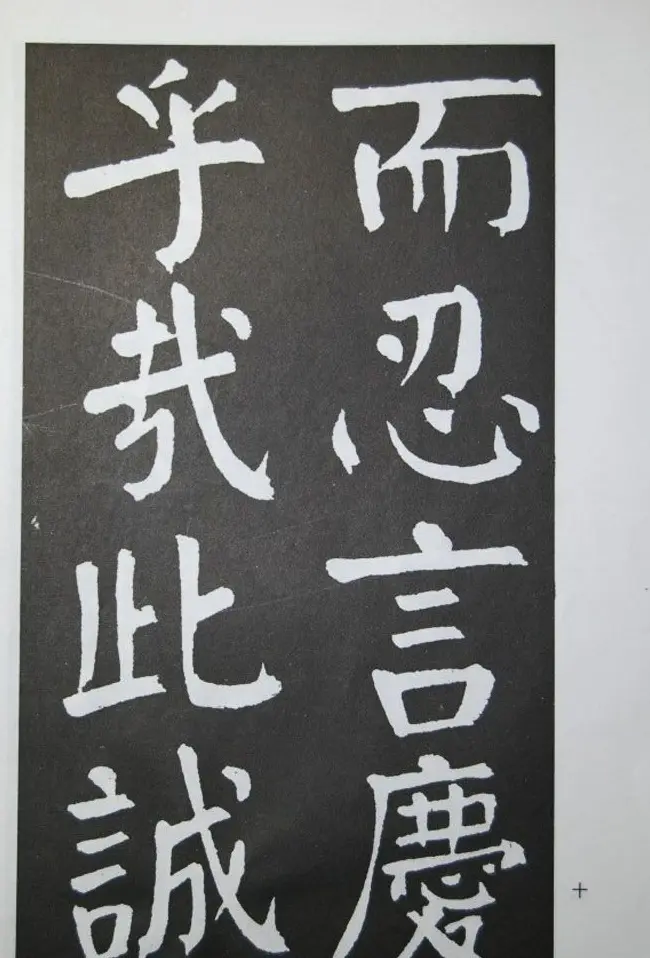 而忍言慶
乎哉此誠